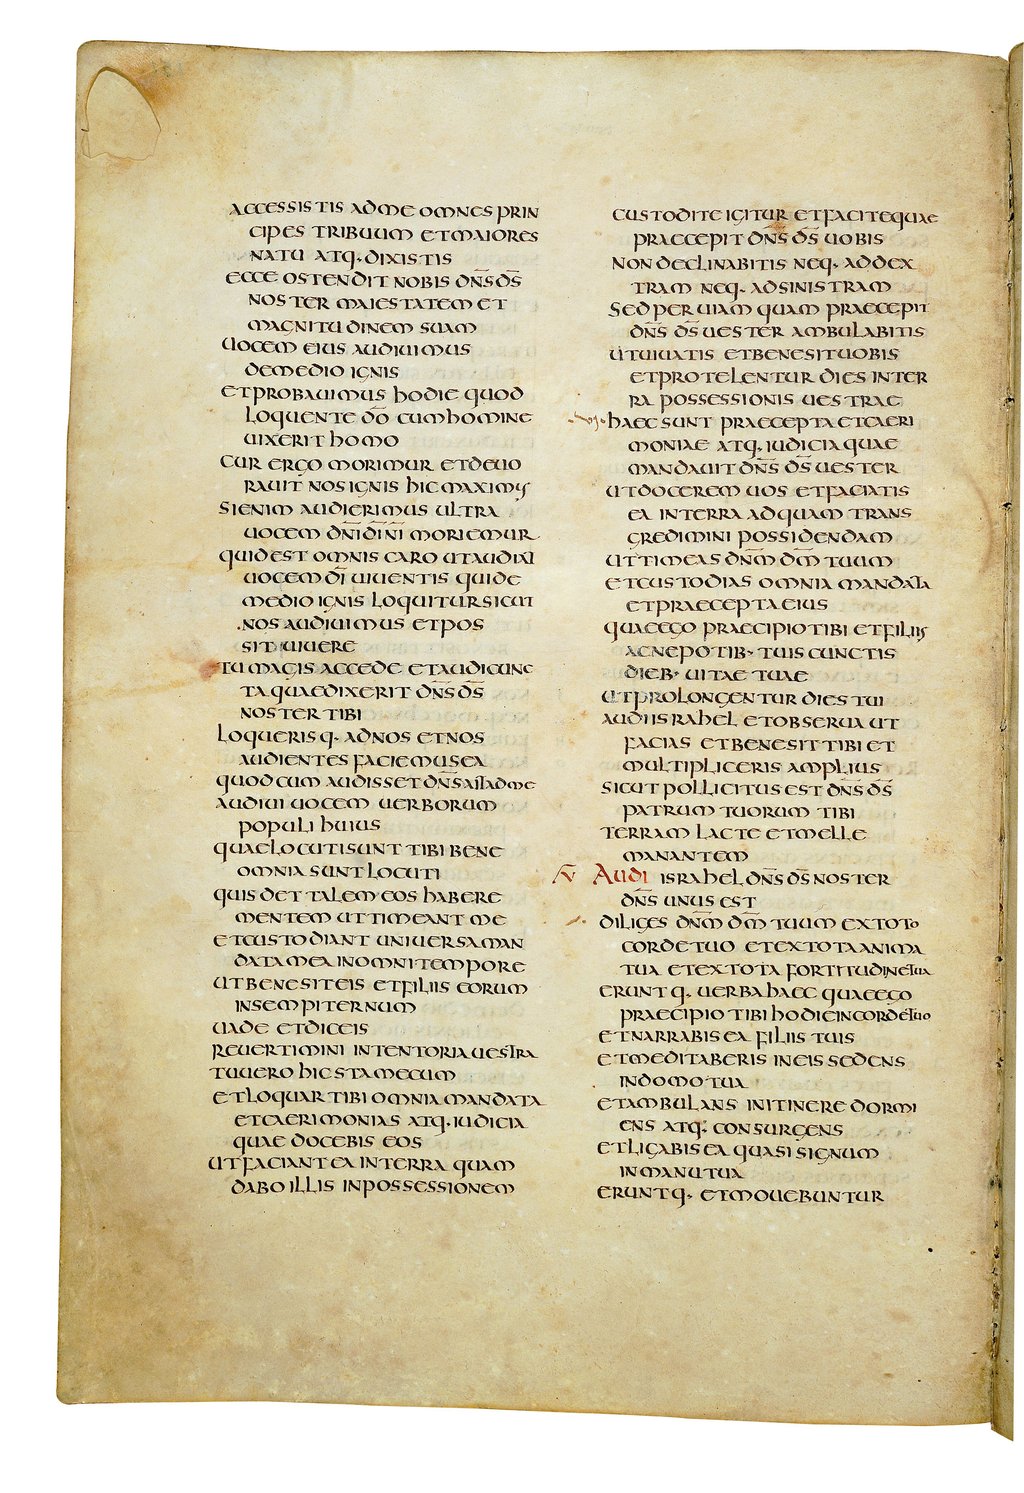 ACCESSISTIS AD ME OMNES PRIN
CIPES TRIBUUM ET MAIORES
NATU ATQ· DIXISTIS
ECCE OSTENDIT NOBIS DN̅S D̅S
NOSTER MAIESTATEM ET
MAGNITUDINEM SUAM
UOCEM EIUS AUDIUIMUS
DE MEDIO IGNIS
ET PROBAUIMUS HODIE QUOD
LOQUENTE D̅O CUM HOMINE
UIXERIT HOMO
CUR ERGO MORIMUR ET DEUO
RAUIT NOS IGNIS HIC MAXIMUS
SI ENIM AUDIERIMUS ULTRA
UOCEM DN̅I DI̅ NI̅ MORIEMUR
QUID EST OMNIS CARO UT AUDIAT
UOCEM DI̅ UIUENTIS QUI DE
MEDIO IGNIS LOQUITUR SICUT
NOS AUDIUIMUS ET POS
SIT UIUERE
TU MAGIS ACCEDE ET AUDI CUNC
TA QUAE DIXERIT DN̅S D̅S
NOSTER TIBI
LOQUERISQ· AD NOS ET NOS
AUDIENTES FACIEMUS EA
QUOD CUM AUDISSET DN̅S AIT AD ME
AUDIUI UOCEM UERBORUM
POPULI HUIUS
QUAE LOCUTI SUNT TIBI BENE
OMNIA SUNT LOCUTI
QUIS DET TALEM EOS HABERE
MENTEM UT TIMEANT ME
ET CUSTODIANT UNIUERSA MAN
DATA MEA IN OMNI TEMPORE
UT BENE SIT EIS ET FILIIS EORUM
IN SEMPITERNUM
UADE ET DIC EIS
REUERTIMINI IN TENTORIA UESTRA
TU UERO HIC STA MECUM
ET LOQUAR TIBI OMNIA MANDATA
ET CAERIMONIAS ATQ· IUDICIA
QUAE DOCEBIS EOS
UT FACIANT EA IN TERRA QUAM
DABO ILLIS IN POSSESSIONEM
CUSTODITE IGITUR ET FACITE QUAE
PRAECEPIT DN̅S D̅S UOBIS
NON DECLINABITIS NEQ· AD DEX
TRAM NEQ· AD SINISTRAM
SED PER UIAM QUAM PRAECEPIT
DN̅S D̅S UESTER AMBULABITIS
UT UIUATIS ET BENE SIT UOBIS
ET PROTELENTUR DIES IN TER
RA POSSESSIONIS UESTRAE
HAEC SUNT PRAECEPTA ET CAERI
MONIAE ATQ· IUDICIA QUAE
MANDAUIT DN̅S D̅S UESTER
UT DOCEREM UOS ET FACIATIS
EA IN TERRA AD QUAM TRANS
GREDIMINI POSSIDENDAM
UT TIMEAS DN̅M D̅M TUUM
ET CUSTODIAS OMNIA MANDATA
ET PRAECEPTA EIUS
QUAE EGO PRAECIPIO TIBI ET FILIIS
AC NEPOTIB· TUIS CUNCTIS
DIEB· UITAE TUAE
UT PROLONGENTUR DIES TUI
AUDI ISRAHEL ET OBSERUA UT
FACIAS ET BENE SIT TIBI ET
MULTIPLICERIS AMPLIUS
SICUT POLLICITUS EST DN̅S D̅S
PATRUM TUORUM TIBI
TERRAM LACTE ET MELLE
MANANTEM
AUDI ISRAHEL DN̅S D̅S NOSTER
DN̅S UNUS EST
DILIGES DN̅M D̅M TUUM EX TOTO
CORDE TUO ET EX TOTA ANIMA
TUA ET EX TOTA FORTITUDINE TUA
ERUNTQ· UERBA HAEC QUAE EGO
PRAECIPIO TIBI HODIE IN CORDE TUO
ET NARRABIS EA FILIIS TUIS
ET MEDITABERIS IN EIS SEDENS
IN DOMO TUA
ET AMBULANS IN ITINERE DORMI
ENS ATQ· CONSURGENS
ET LIGABIS EA QUASI SIGNUM
IN MANU TUA
ERUNTQ· ET MOUEBUNTUR